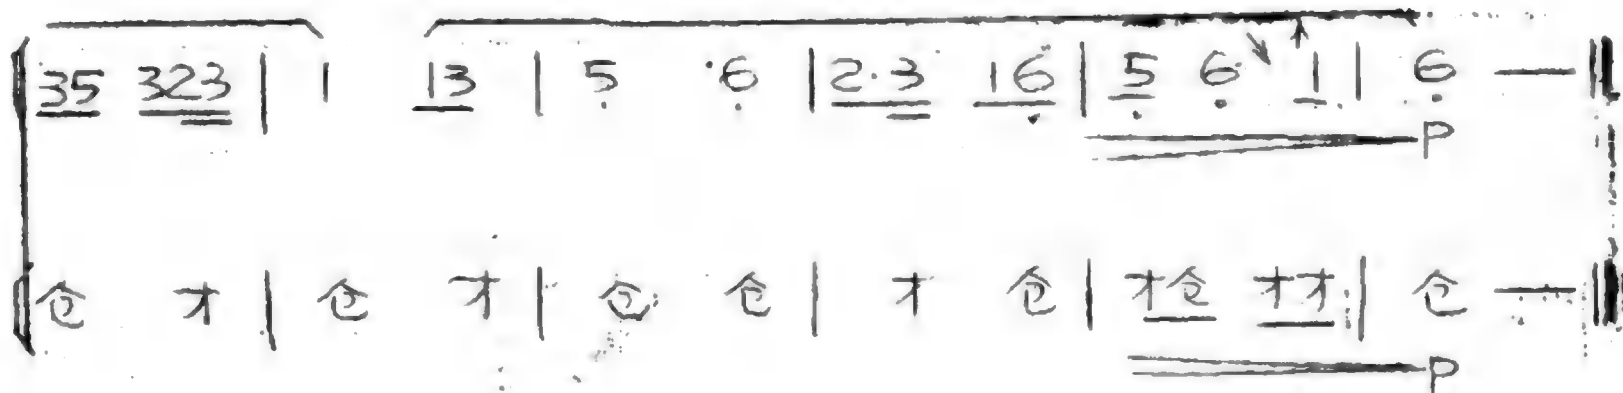 35 323 | 1 13 | 5 6 | 2·3 16 | 5 6 1 | 6 — ‖
P
仓 才 | 仓 才 | 仓 仓 | 才 仓 | 才仓 才才 | 仓 — ‖
P